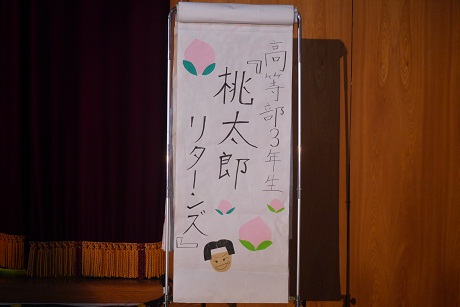 高等部3年生
『桃太郎
リターンズ』